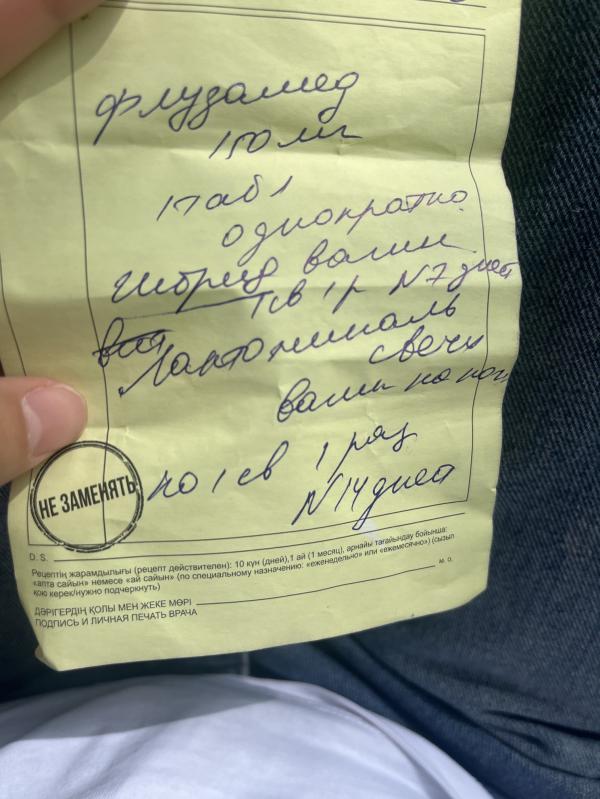 Флузамед
150 мг
1 таб 1
однократно
Гибрид вагин
1 св 1 р N 7 дней
Лактожиналь
свечи
вагин на ноч
по 1 св 1 раз
N 14 дней
НЕ ЗАМЕНЯТЬ
D. S.
Рецептің жарамдылығы (рецепт действителен): 10 күн (дней), 1 ай (1 месяц), арнайы тағайындау бойынша:
«апта сайын» немесе «ай сайын» (по специальному назначению: «еженедельно» или «ежемесячно») (сызып
қою керек/нужно подчеркнуть)
М. О.
ДӘРІГЕРДІҢ ҚОЛЫ МЕН ЖЕКЕ МӨРІ
ПОДПИСЬ И ЛИЧНАЯ ПЕЧАТЬ ВРАЧА